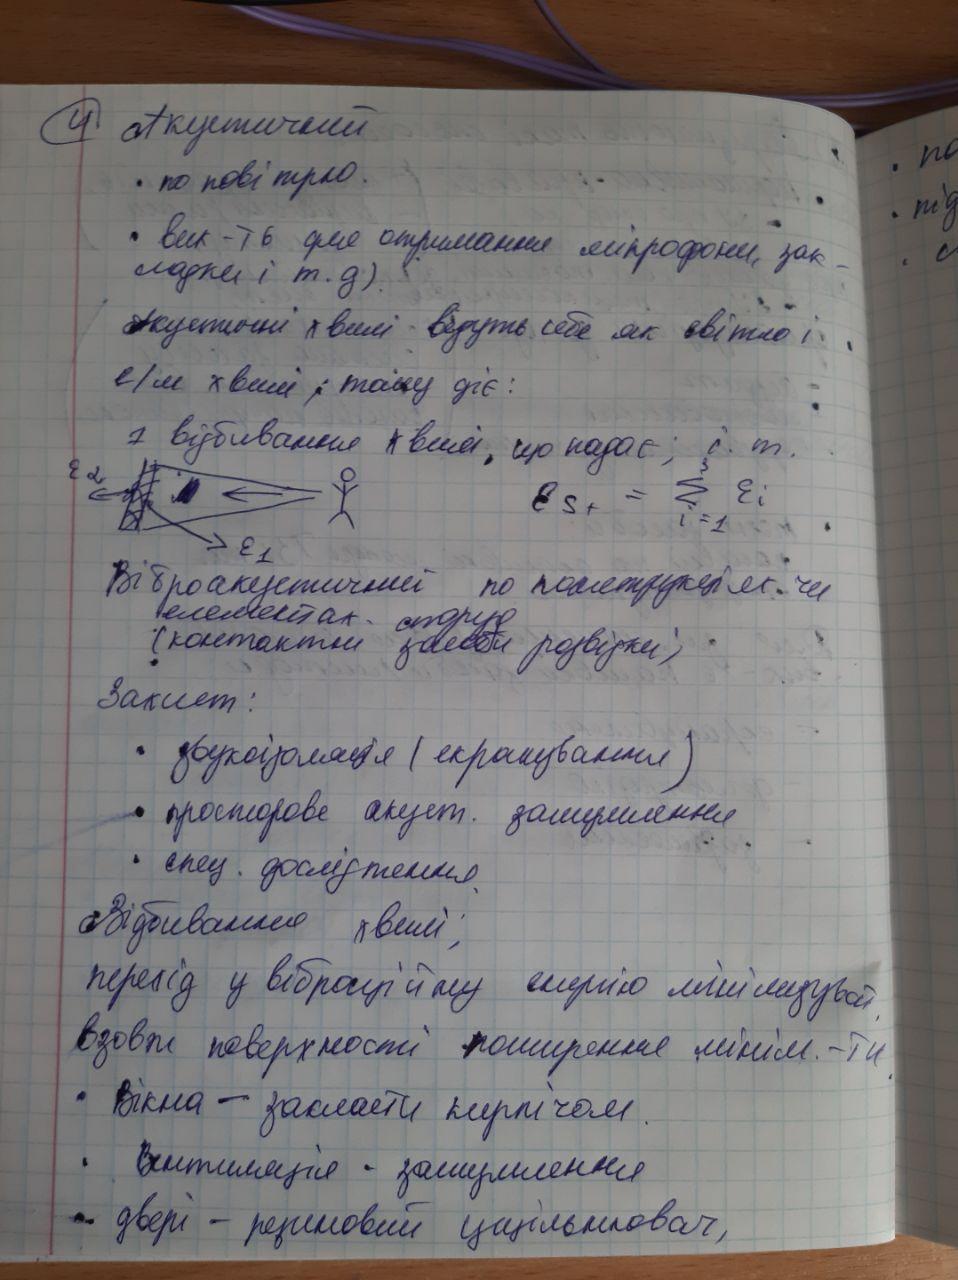 4 Акустичний
• по повітрю.
• вик-ть для отримання мікрофони, зак-
ладки і т.д)
Акустичні хвилі ведуть себе як світло і
е/м хвилі, тому діє:
1 відбивання хвилі, що падає; і т.
ε2
ε1
εs+ = Σ εi
3
i=1
Віброакустичний по конструкціях чи
елементах споруд
(контактні засоби розвідки)
Захист:
• звукоізоляція (екранування)
• просторове акуст. зашумлення
• спец. дослідження.
Відбивання хвилі;
перехід у вібраційну енергію мінімізуват.
вздовж поверхності поширення мінім.-ти.
• Вікна – закласти кирпічом.
• Вентиляція - зашумлення
• двері – резиновий ущільнювач,
• по
• під
•